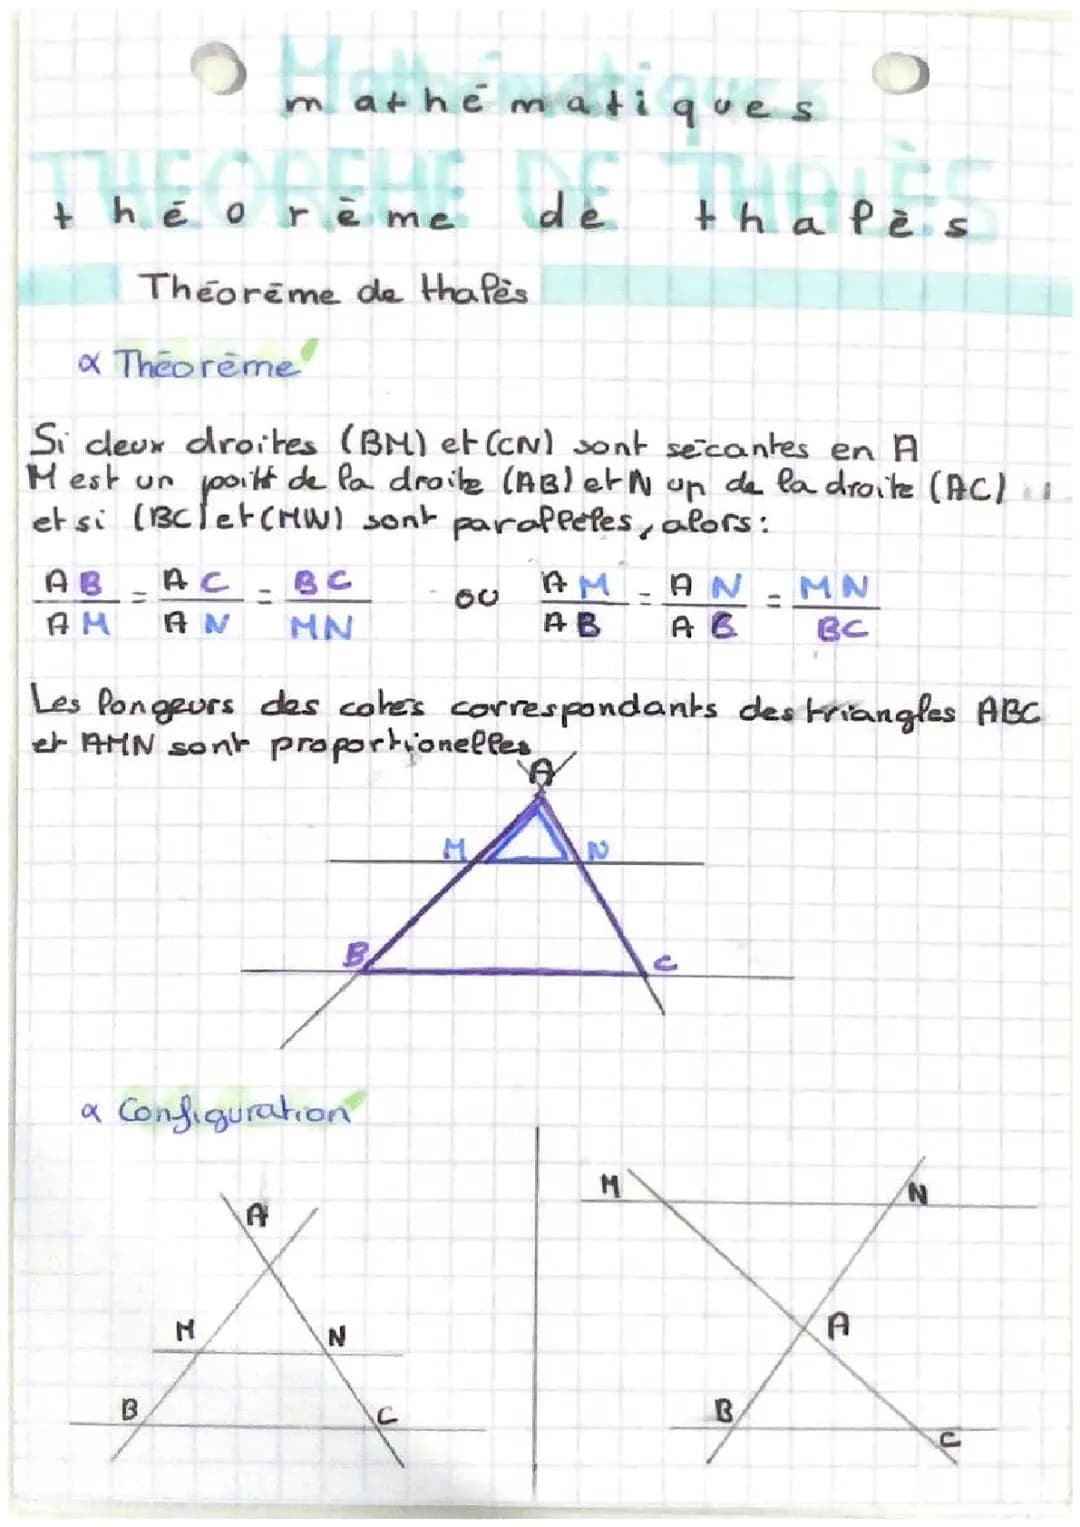 Mathématiques
mathématiques
THEOREME DE THALÈS
théorème de thalès
Théorème de thalès
α Théorème
Si deux droites (BM) et (CN) sont sécantes en A
M est un point de la droite (AB) et N un de la droite (AC)
et si (BC) et (MN) sont parallèles, alors :
AB/AM = AC/AN = BC/MN ou AM/AB = AN/AB = MN/BC
Les longeurs des cotés correspondants des triangles ABC
et AMN sont proportionelles
A
M N
B C
α Configuration
M N
A
A
M N
B C
B C